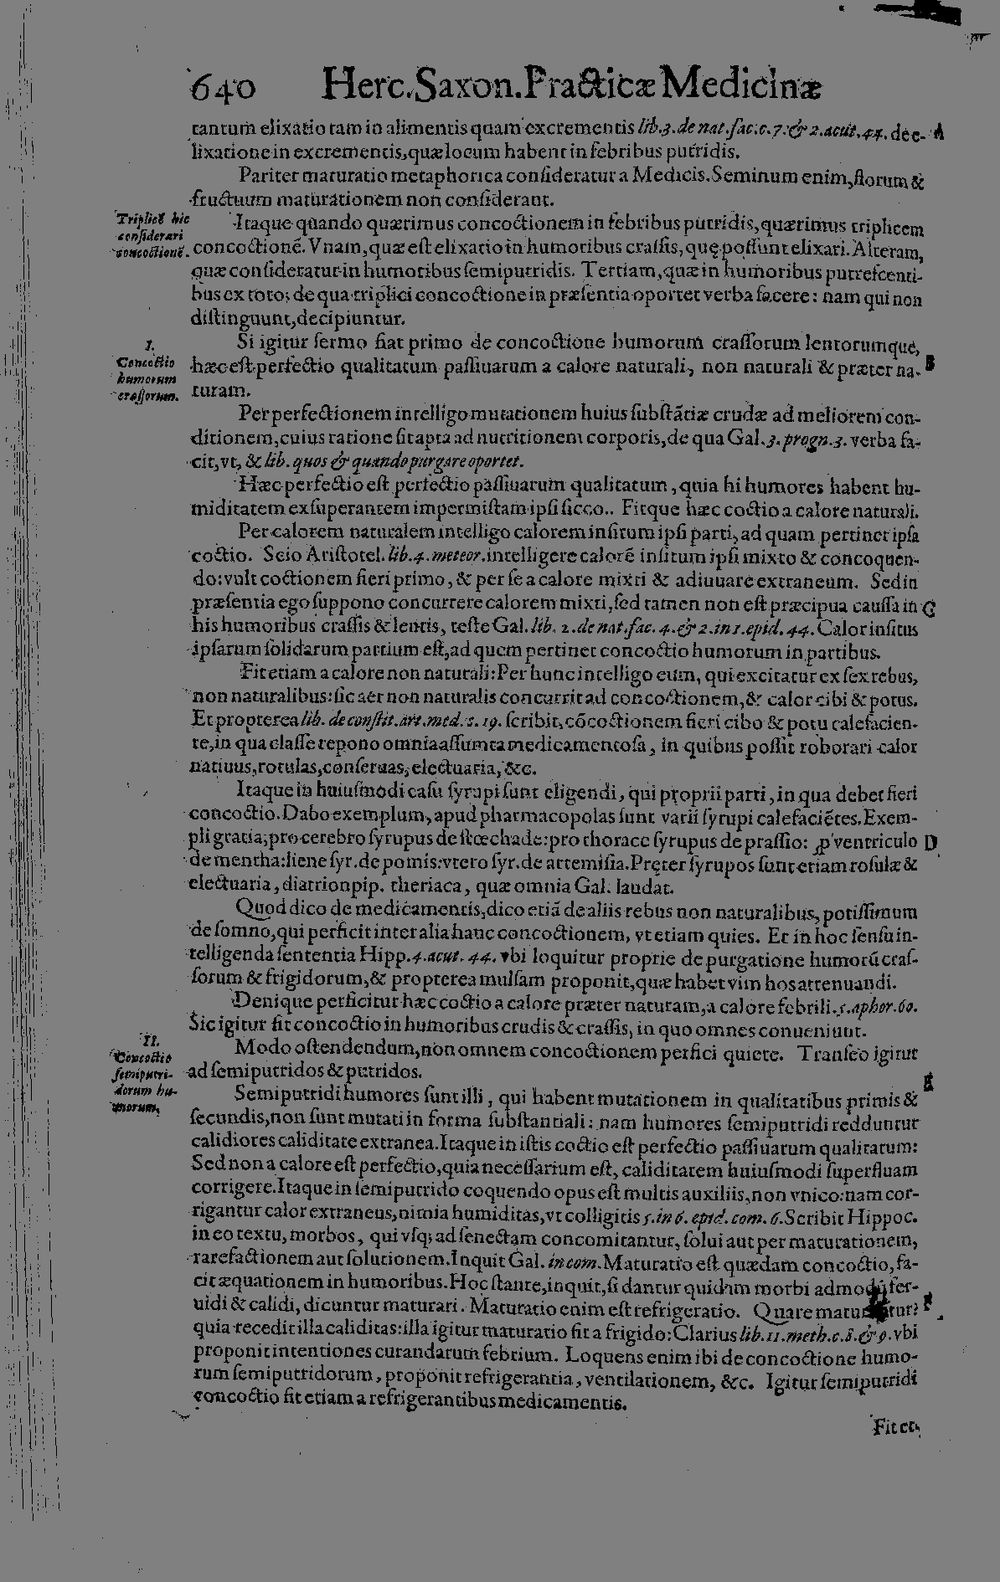 640 Herc. Saxon. Practicæ Medicinæ
tantum elixatio tam in alimentis quam excrementis lib. 3. de nat. fac. c. 7. & 2. acut. 44. de e- A
lixatione in excrementis, quæ locum habent in febribus putridis.
Pariter maturatio metaphorica consideratur a Medicis. Seminum enim, florum &
fructuum maturationem non considerant.
Triplicẽ hic
considerari
concoctionẽ.
Itaque quando quærimus concoctionem in febribus putridis, quærimus triplicem
concoctionẽ. Vnam, quæ est elixatio in humoribus crassis, quę possunt elixari. Alteram,
quæ consideratur in humoribus semiputridis. Tertiam, quæ in humoribus putrescenti-
bus ex toto; de qua triplici concoctione in præsentia oportet verba facere: nam qui non
distinguunt, decipiuntur.
I.
Concoctio
humorum
crassorum.
Si igitur sermo fiat primo de concoctione humorum crassorum lentorumque,
hæc est perfectio qualitatum passiuarum a calore naturali, non naturali & præter na- B
turam.
Per perfectionem intelligo mutationem huius substãtiæ crudæ ad meliorem con-
ditionem, cuius ratione fit apta ad nutritionem corporis, de qua Gal. 3. progn. 3. verba fa-
cit, vt, & lib. quos & quando purgare oportet.
Hæc perfectio est perfectio passiuarum qualitatum, quia hi humores habent hu-
miditatem exsuperantem impermistam ipsi sicco.. Fitque hæc coctio a calore naturali.
Per calorem naturalem intelligo calorem insitum ipsi parti, ad quam pertinet ipsa
coctio. Scio Aristotel. lib. 4. meteor. intelligere calorẽ insitum ipsi mixto & concoquen-
do: vult coctionem fieri primo, & per se a calore mixti & adiuuare extraneum. Sed in
præsentia ego suppono concurrere calorem mixti, sed tamen non est præcipua caussa in C
his humoribus crassis & lentis, teste Gal. lib. 2. de nat. fac. 4. & 2. in 1. epid. 44. Calor insitus
ipsarum solidarum partium est, ad quem pertinet concoctio humorum in partibus.
Fit etiam a calore non naturali: Per hunc intelligo eum, qui excitatur ex sex rebus,
non naturalibus: sic aer non naturalis concurrit ad concoctionem, & calor cibi & potus.
Et propterea lib. de constit. art. med. s. 19. scribit, cõcoctionem fieri cibo & potu calefacien-
te, in qua classe repono omnia assumta medicamentosa, in quibus possit roborari calor
natiuus, rotulas, conseruas, electuaria, &c.
Itaque in huiusmodi casu syrupi sunt eligendi, qui proprii parti, in qua debet fieri
concoctio. Dabo exemplum, apud pharmacopolas sunt varii syrupi calefaciẽtes. Exem-
pli gratia; pro cerebro syrupus de stœchade: pro thorace syrupus de prassio: ꝓ ventriculo D
de mentha: liene syr. de pomis: vtero syr. de artemisia. Pręter syrupos sunt etiam rosulæ &
electuaria, diatrionpip. theriaca, quæ omnia Gal. laudat.
Quod dico de medicamentis, dico etiã de aliis rebus non naturalibus, potissimum
de somno, qui perficit inter alia hanc concoctionem, vt etiam quies. Et in hoc sensu in-
telligenda sententia Hipp. 4. acut. 44. vbi loquitur proprie de purgatione humorũ cras-
sorum & frigidorum, & propterea mulsam proponit, quæ habet vim hos attenuandi.
Denique perficitur hæc coctio a calore præter naturam, a calore febrili. 5. aphor. 60.
Sic igitur fit concoctio in humoribus crudis & crassis, in quo omnes conueniunt.
II.
Concoctio
semiputri-
dorum hu-
morum.
Modo ostendendum, non omnem concoctionem perfici quiete. Transeo igitur
ad semiputridos & putridos.
Semiputridi humores sunt illi, qui habent mutationem in qualitatibus primis & E
secundis, non sunt mutati in forma substantiali: nam humores semiputridi redduntur
calidiores caliditate extranea. Itaque in istis coctio est perfectio passiuarum qualitatum:
Sed non a calore est perfectio, quia necessarium est, caliditatem huiusmodi superfluam
corrigere. Itaque in semiputrido coquendo opus est multis auxiliis, non vnico: nam cor-
rigantur calor extraneus, nimia humiditas, vt colligitis 5. in 6. epid. com. 6. Scribit Hippoc.
in eo textu, morbos, qui vsq; ad senectam concomitantur, solui aut per maturationem,
rarefactionem aut solutionem. Inquit Gal. in com. Maturatio est quædam concoctio, fa-
cit æquationem in humoribus. Hoc stante, inquit, si dantur quidam morbi admodũ fer-
uidi & calidi, dicuntur maturari. Maturatio enim est refrigeratio. Quare maturantur? F
quia recedit illa caliditas: illa igitur maturatio fit a frigido: Clarius lib. 11. meth. c. 8. & 9. vbi
proponit intentiones curandarum febrium. Loquens enim ibi de concoctione humo-
rum semiputridorum, proponit refrigerantia, ventilationem, &c. Igitur semiputridi
concoctio fit etiam a refrigerantibus medicamentis.
Fit et-